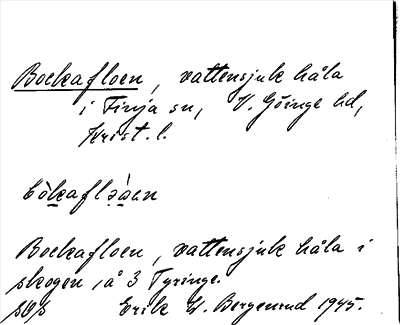 Bockafloen, vattensjuk håla
i Finja sn, V. Göinge hd,
Krist. l.
Bockafloen, vattensjuk håla i
skogen, å 3 Tyringe.
Erik W. Bergenrud 1945.